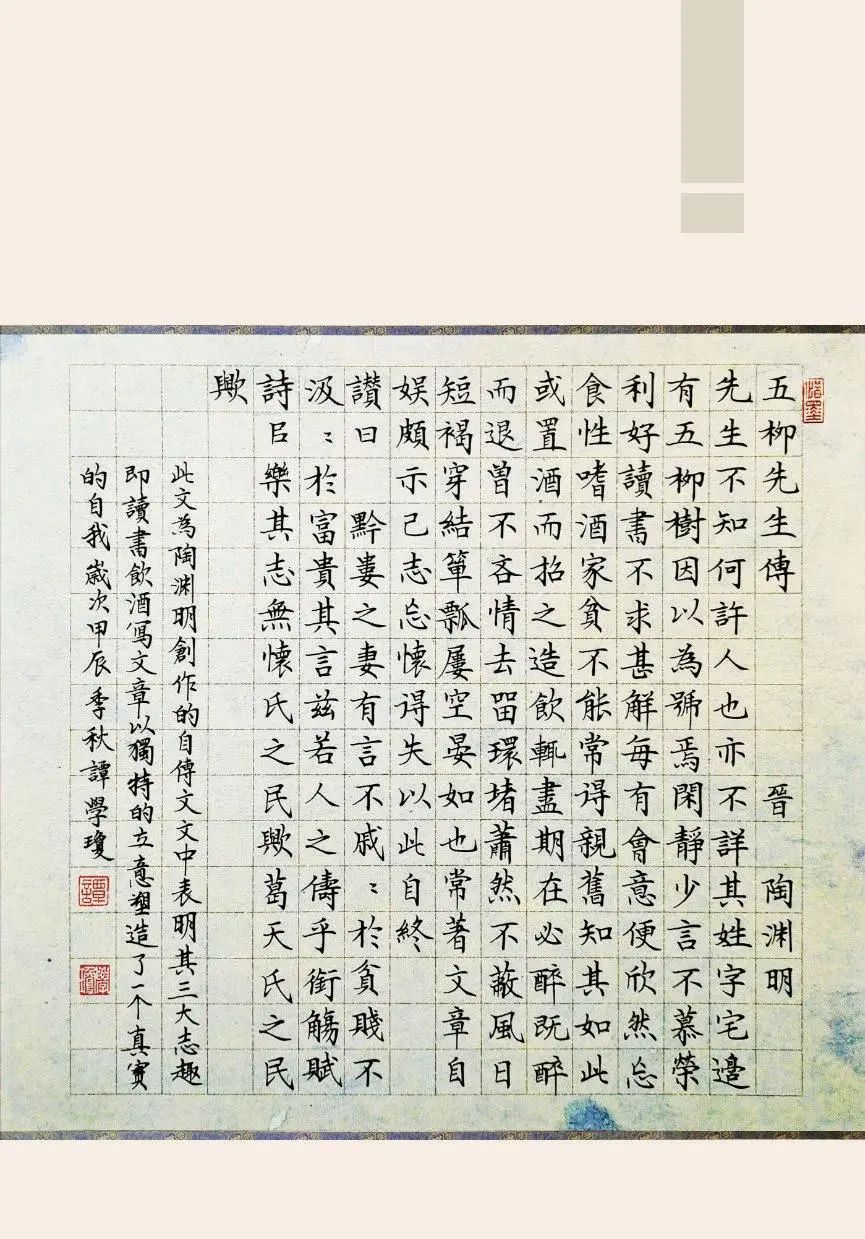 惜墨
五柳先生傳 晉 陶渊明
先生不知何許人也亦不詳其姓字宅邊
有五柳樹因以為號焉閑靜少言不慕榮
利好讀書不求甚解每有會意便欣然忘
食性嗜酒家貧不能常得親舊知其如此
或置酒而招之造飲輒盡期在必醉既醉
而退曾不吝情去畱環堵蕭然不蔽風日
短褐穿結簞瓢屢空晏如也常著文章自
娱頗示己志忘懷得失以此自終
讃曰 黔婁之妻有言不戚〻於貧賤不
汲〻於富貴其言兹若人之儔乎銜觴賦
詩㠯樂其志無懷氏之民歟葛天氏之民
歟
此文為陶渊明創作的自傳文文中表明其三大志趣
即讀書飲酒寫文章以獨特的立意塑造了一个真實
的自我歲次甲辰季秋譚學瓊
譚
學瓊